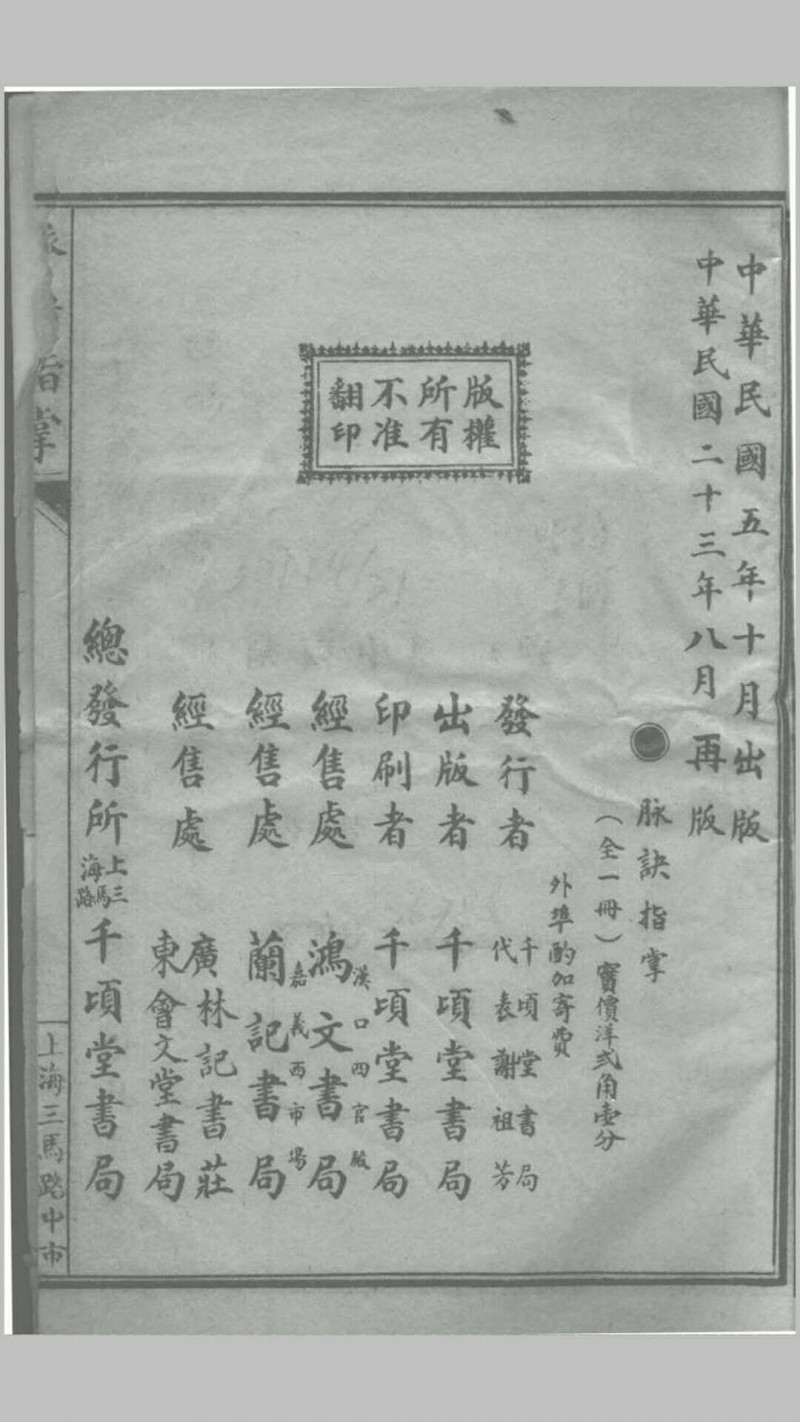 中華民國五年十月出版
中華民國二十三年八月再版
脉訣指掌
（全一冊）實價洋弍角壹分
外埠酌加寄費
版權
所有
不准
翻印
發行者 千頃堂書局
代表謝祖芳
出版者 千頃堂書局
印刷者 千頃堂書局
經售處 漢口四官殿
鴻文書局
經售處 嘉義西市場
蘭記書局
經售處 廣林記書莊
東會文堂書局
總發行所 上海三馬路 千頃堂書局
指掌
上海三馬路中市